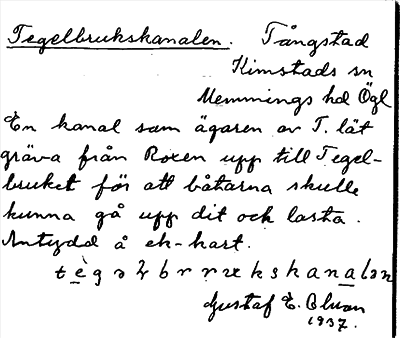 Tegelbrukskanalen. Tångstad
Kimstads sn
Memmings hd Ögl
En kanal som ägaren av T. lät
gräva från Roxen upp till Tegel-
bruket för att båtarna skulle
kunna gå upp dit och lasta.
Antydd å ek-kart.
Gustaf E.
1937.